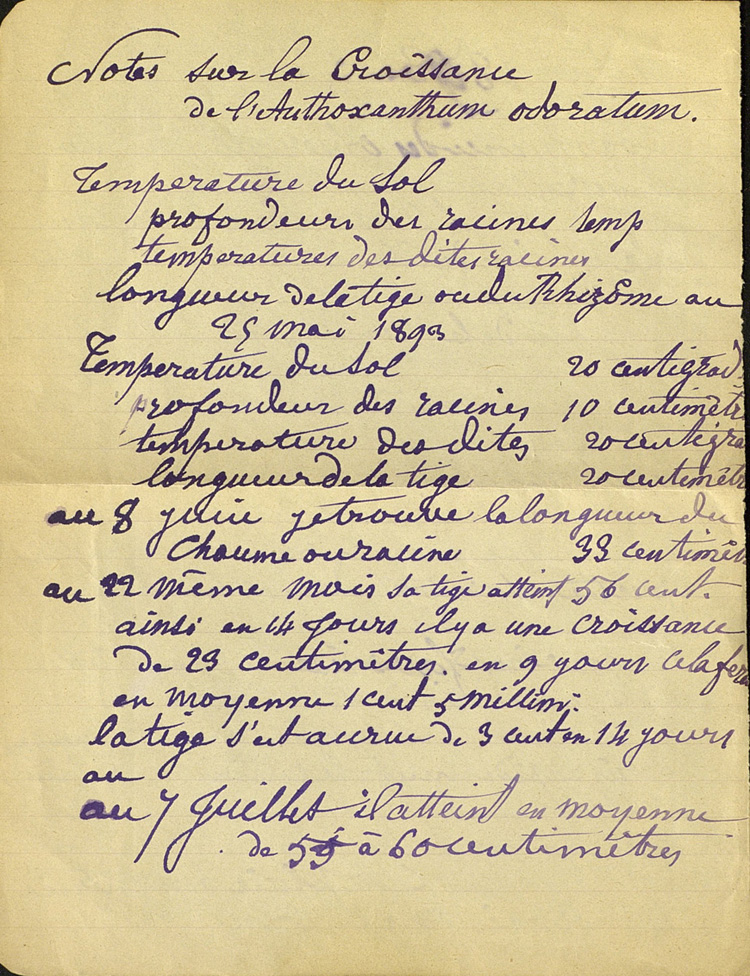 Notes sur la Croissance
de l'Authoxanthum odoratum.
Temperature du Sol
profondeurs des racines temp
temperatures des dites racines
longueur de la tige ou du Rhizôme au
25 mai 1893
Temperature du Sol 20 centigrad
profondeur des racines 10 centimètr
temperature des dites 20 centigra
longueur de la tige 20 centimètr
au 8 juin je trouve la longueur du
Chaume ou racine 33 centimèt
au 22 même mois sa tige atteint 56 cent.
ainsi en 14 jours il y a une croissance
de 23 centimètres. en 9 yours cela fera
en moyenne 1 cent 5 millim:
la tige s'est accrue de 3 cent en 14 yours
au
au 7 Juillet il atteint en moyenne
de 55 à 60 centimètres